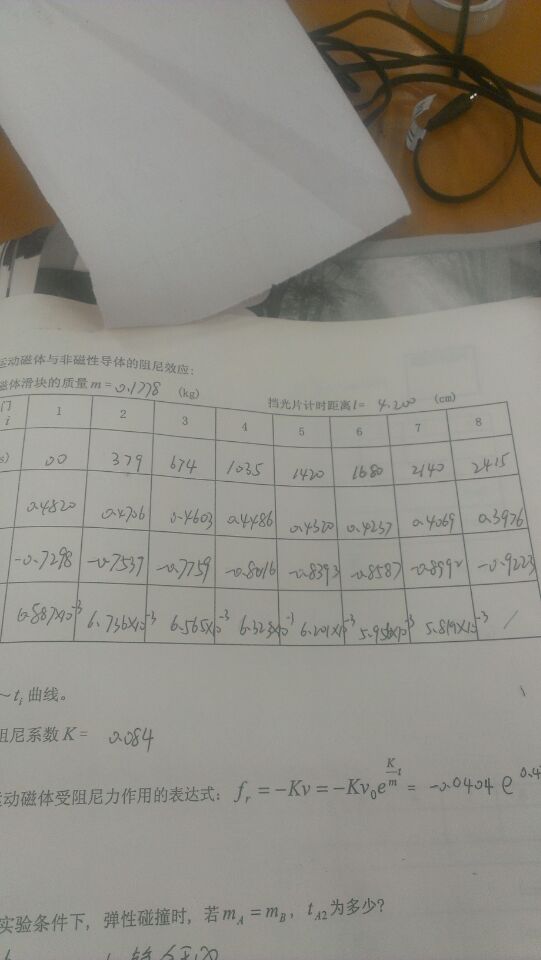 运动磁体与非磁性导体的阻尼效应:
磁体滑块的质量m=0.1778 (kg) 挡光片计时距离l= 4.200 (cm)
门 i 1 2 3 4 5 6 7 8
s) 00 379 674 1035 1420 1680 2140 2415
0.4820 0.4706 0.4603 0.4486 0.4320 0.4237 0.4069 0.3976
-0.7298 -0.7537 -0.7759 -0.8016 -0.8393 -0.8587 -0.8992 -0.9223
6.887×10⁻³ 6.736×10⁻³ 6.565×10⁻³ 6.323×10⁻³ 6.201×10⁻³ 5.956×10⁻³ 5.819×10⁻³ /
~ tᵢ 曲线。
阻尼系数 K = 0.084
运动磁体受阻尼力作用的表达式: fᵣ = -Kv = -Kv₀e^(K/m t) = -0.0404 e^0.4
实验条件下, 弹性碰撞时, 若 m_A = m_B, t_A2 为多少?